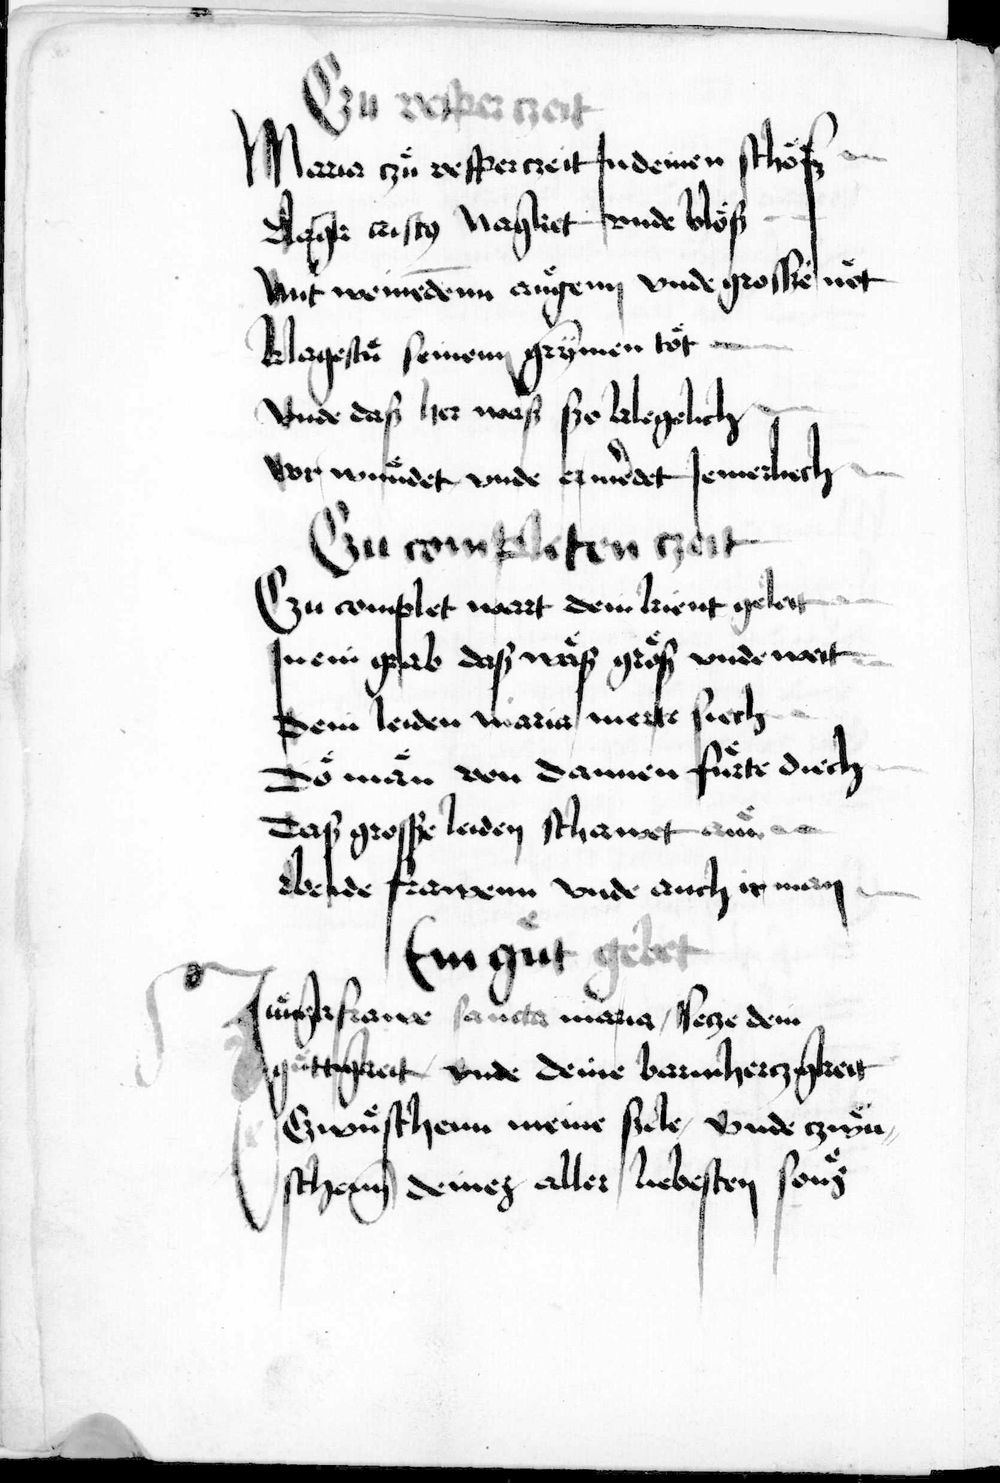 Czu vesper czeit
Maria czuͦ vesper czeit In deinen schoͤsz
Lagk cristus Nagket vnde bloͤsz
Mit weinedenn auͤgenn vnde grosser noͤt
klagestuͤ seinenn grymen toͤt
Vnde dasz her wasz szo klegelich
vor wuͤndet vnde ermoͤrdet Jemerliech
Czu completen czeit
Czu complet wart dein kient geleit
In ein grab dasz wasz groͤsz vnde weit
Dein leiden maria merke siech
Doͤ man von dannen fuͤrte diech
Dasz grossze leiden schawet an
beide frawenn vnde auch ir man
Ein guͤt gebet
Juͤngkfrawe sancta maria / Setze dein
guͤttigkeit / vnde deine barmherczigkeit
Czwuͤschenn meine szele / Vnde czwuͤ⸗
schenn deinez aller liebesten sonsz